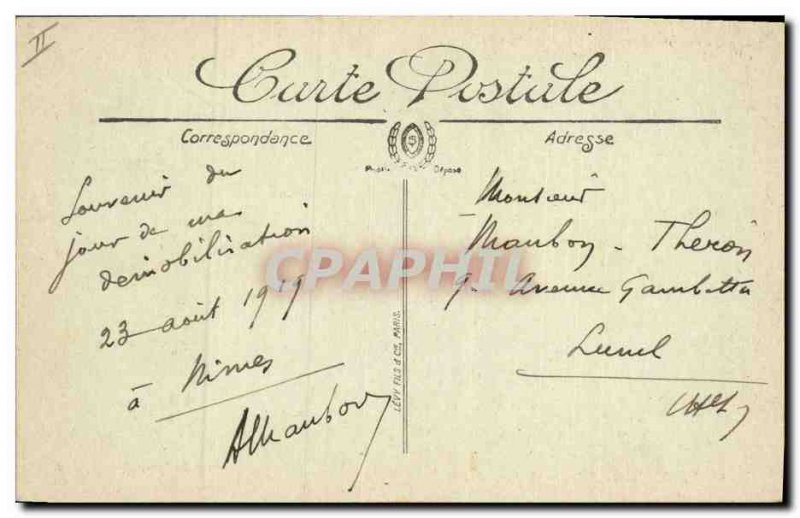 II
Carte Postale
Correspondance
Adresse
Souvenir du
jour de ma
démobilisation
23 août 1919
à Nimes
AMaubon
Monsieur
Maubon - Theron
9. Avenue Gambetta
Lunel
LÉVY FILS & Cie, PARIS.
CPAPHIL